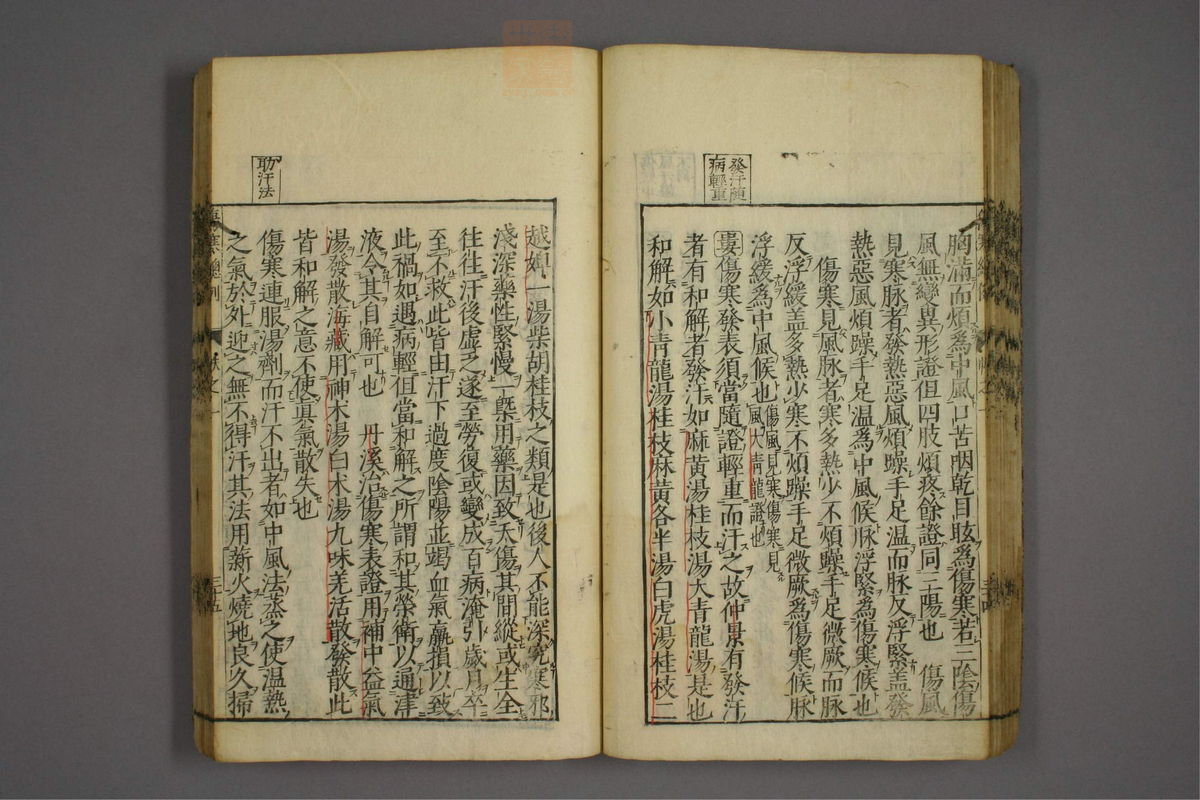 發汗随
病輕重
胸滿而煩爲中風口苦咽乾目眩爲傷寒若三陰陽
風無變異形證但四肢煩疼餘證同三陽也　傷風
見寒脉者發熱惡風煩躁手足温而脉反浮緊盖發
熱惡風煩躁手足温爲中風候脉浮緊爲傷寒候也
傷寒見風脉者寒多熱少不煩躁手足微厥而脉
反浮緩盖多熱少寒不煩躁手足微厥爲傷寒候脉
浮緩爲中風候也傷風見寒傷寒見
風大青龍證也
婁傷寒發表須當隨證輕重而汗之故仲景有發汗
者有和解者發汗如麻黄湯桂枝湯大青龍湯是也
和解如小青龍湯桂枝麻黄各半湯白虎湯桂枝二
越婢一湯柴胡桂枝之類是也後人不能深究寒邪
淺深藥性緊慢一槩用藥因致夭傷其間縱或生全
往往汗後虚乏遂至勞復或變成百病淹引歲月卒
至不救此皆由汗下過度陰陽並竭血氣羸損以致
此禍如遇病輕但當和解之所謂和其榮衛以通津
液令其自解可也　丹溪治傷寒表證用補中益氣
湯發散海藏用神术湯白术湯九味羌活散發散此
皆和解之意不使眞氣散失也
傷寒連服湯劑而汗不出者如中風法蒸之使温熱
之氣於外迎之無不得汗其法用薪火燒地良久掃
助汗法
三十五